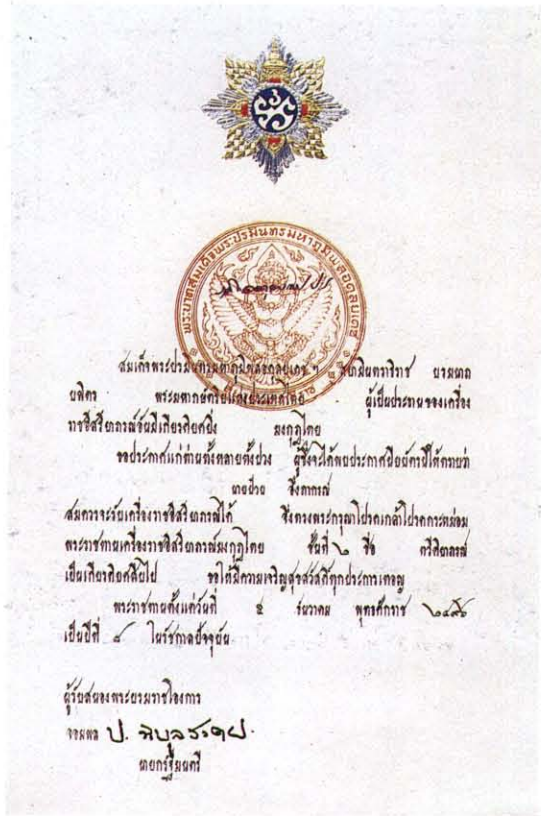 พระบาทสมเด็จพระปรมินทรมหาภูมิพลอดุลยเดช
สมเด็จพระปรมินทรมหาภูมิพลอดุลยเดช ฯ บรมนาถ
บพิตร พระมหากษัตริย์แห่งประเทศไทย ผู้เป็นประธานของเครื่อง
ราชอิสริยาภรณ์อันมีเกียรติยศยิ่ง มงกุฎไทย
ขอประกาศแก่ท่านทั้งหลายทั้งปวง ผู้ซึ่งจะได้พบประกาศนียบัตรนี้ให้ทราบว่า
นายป่วย อึ๊งภากรณ์
สมควรจะรับเครื่องราชอิสริยาภรณ์ได้ จึงทรงพระกรุณาโปรดเกล้าโปรดกระหม่อม
พระราชทานเครื่องราชอิสริยาภรณ์มงกุฎไทย ชั้นที่ ๒ ชื่อ ตริตาภรณ์
เป็นเกียรติยศสืบไป ขอให้มีความเจริญสุขสวัสดิ์ทุกประการเทอญ
พระราชทานตั้งแต่วันที่ ๕ ธันวาคม พุทธศักราช ๒๔๙๖
เป็นปีที่ ๘ ในรัชกาลปัจจุบัน
ผู้รับสนองพระบรมราชโองการ
จอมพล ป. พิบูลสงคราม
นายกรัฐมนตรี